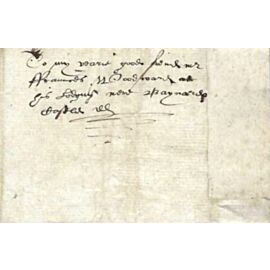 To my verie good frend mr
ffrauncis Woodward at
his lodging nere Baynardes
Castle dd